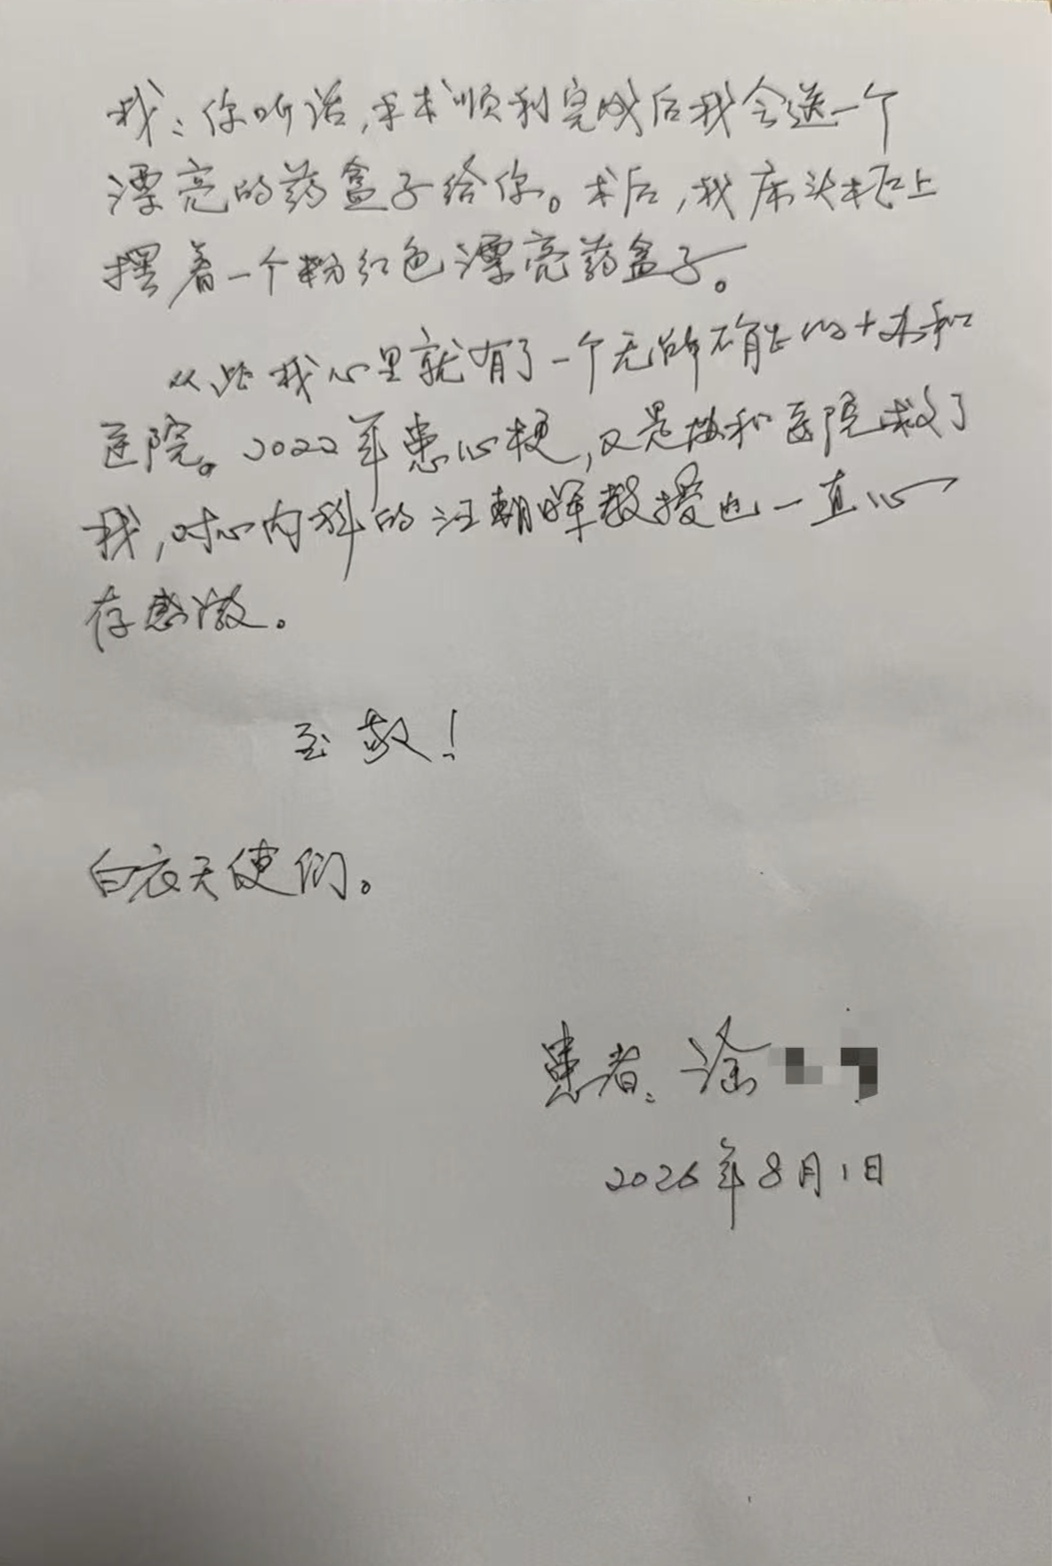 我：你听话，手术顺利完成后我会送一个
漂亮的药盒子给你。术后，我床头柜上
摆着一个粉红色漂亮药盒子。
从此我心里就有了一个无所不能的协和
医院。2022年患心梗，又是协和医院救了
我，对心内科的汪朝晖教授也一直心
存感激。
至敬！
白衣天使们。
患者：涂
2026年8月1日